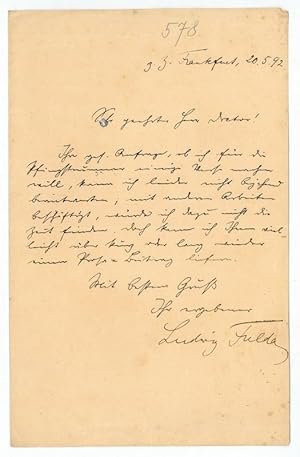 578
z. Z. Frankfurt, 20.5.92
Sehr geehrter Herr Doctor!
Ihre gef. Anfrage, ob ich für die
Pfingstnummer einige Verse machen
will, kann ich leider nicht bejahend
beantworten; mit andren Arbeiten
beschäftigt, würde ich dazu nicht die
Zeit finden. Doch kann ich Ihnen viel-
leicht über kurz oder lang wieder
einen Prosa-Beitrag liefern.
Mit bestem Gruß
Ihr ergebener
Ludwig Fulda